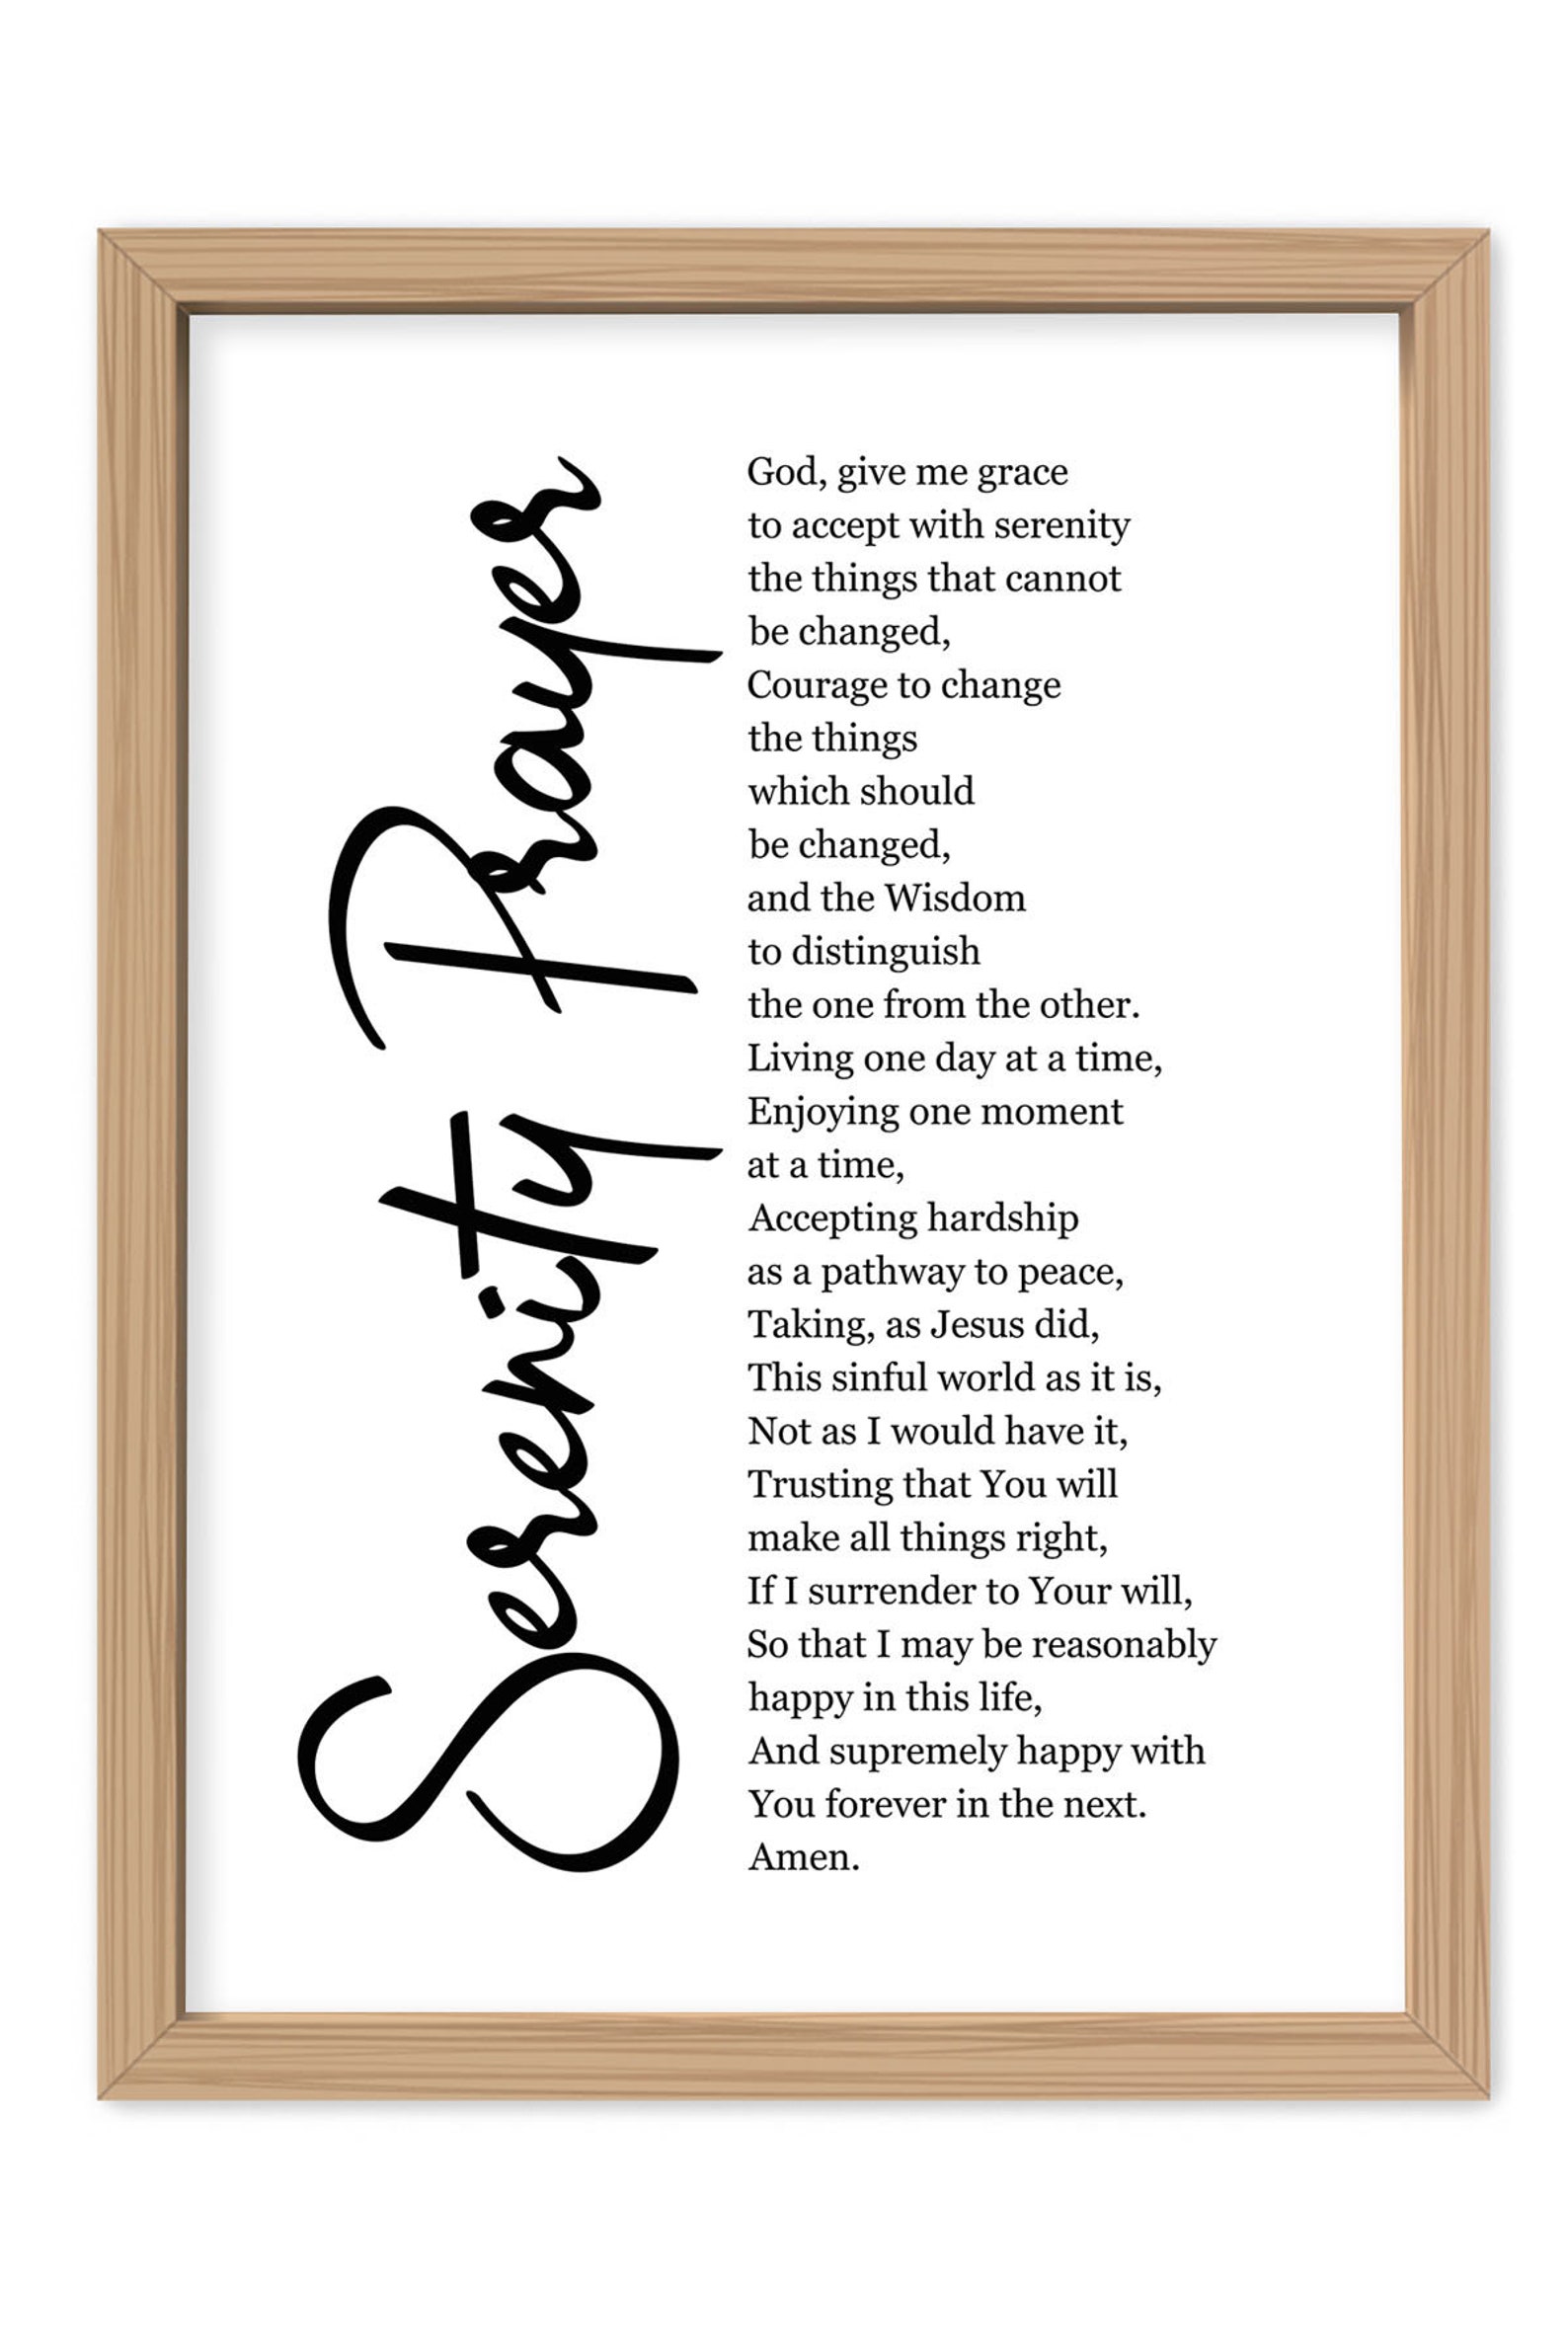 Serenity Prayer
God, give me grace
to accept with serenity
the things that cannot
be changed,
Courage to change
the things
which should
be changed,
and the Wisdom
to distinguish
the one from the other.
Living one day at a time,
Enjoying one moment
at a time,
Accepting hardship
as a pathway to peace,
Taking, as Jesus did,
This sinful world as it is,
Not as I would have it,
Trusting that You will
make all things right,
If I surrender to Your will,
So that I may be reasonably
happy in this life,
And supremely happy with
You forever in the next.
Amen.